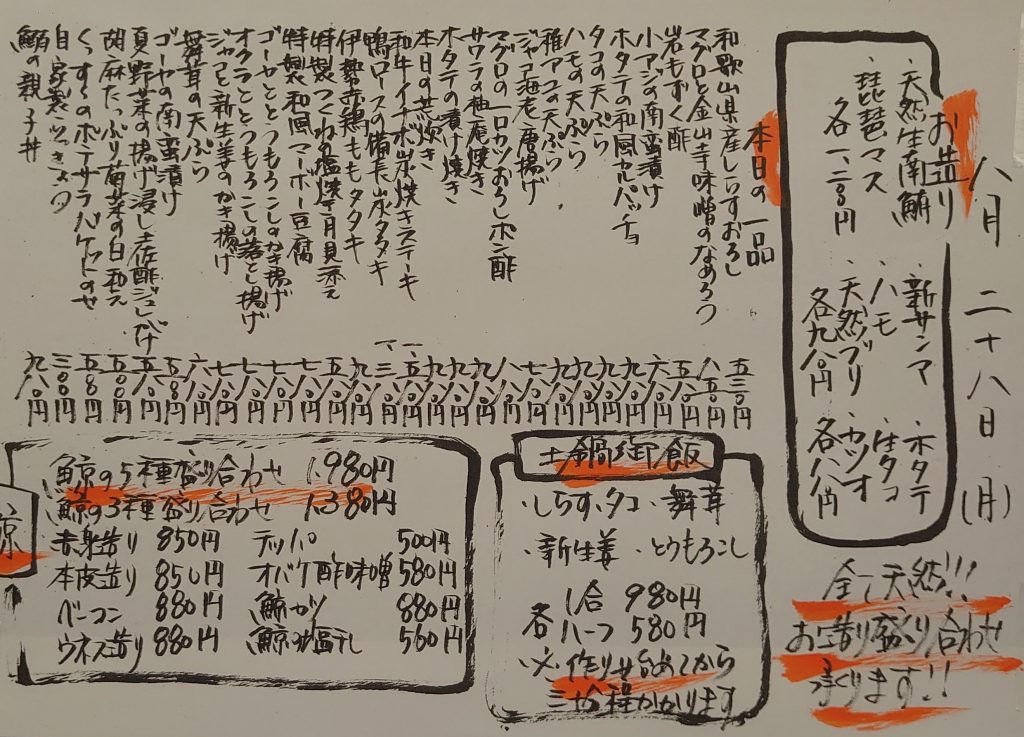 八月二十八日(月)
お造り
・天然生南鮪
・琵琶マス
各一、二〇〇円
・新サンマ
・ハモ
・天然ブリ
各九八〇円
・ホタテ
・生タコ
・カツオ
各八八〇円
全て天然!!!
お造り盛り合わせ
承ります!!
本日の一品
和歌山県産しらすおろし 五三〇円
マグロと金山寺味噌のなめろう 八五〇円
岩もずく酢 五八〇円
小アジの南蛮漬け 六八〇円
ホタテの和風カルパッチョ 九八〇円
タコの天ぷら
ハモの天ぷら
稚アユの天ぷら
ジャコ海老唐揚げ
マグロの一口カツおろしポン酢
サワラの柚庵焼き
ホタテの漬け焼き
本日の荒炊き
和牛イチボ炭焼きステーキ
鴨ロースの備長炭タタキ
伊勢赤鶏ももタタキ
特製つくねの塩焼き月見添え
特製和風マーボー豆腐
ゴーヤととうもろこしのかき揚げ
オクラととうもろこしの落とし揚げ
ジャコと新生姜のかき揚げ
舞茸の天ぷら
ゴーヤの南蛮漬け
夏野菜の揚げ浸し土佐酢ジュレがけ
胡麻たっぷり菊菜の白和え 五〇〇円
くっすんのポテサラバケットのせ 五八〇円
自家製らっきょう 三〇〇円
鮪の親子丼 九八〇円
土鍋御飯
・しらす・タコ・舞茸
・新生姜・とうもろこし
各 1合 980円
ハーフ 580円
※作り始めてから
三十分程かかります
鯨
鯨の5種盛り合わせ 1,980円
鯨の3種盛り合わせ 1,380円
赤身造り 850円 テッパ 500円
本皮造り 850円 オバケ酢味噌 580円
ベーコン 880円 鯨カツ 880円
ウネス造り 880円 鯨の塩干し 560円